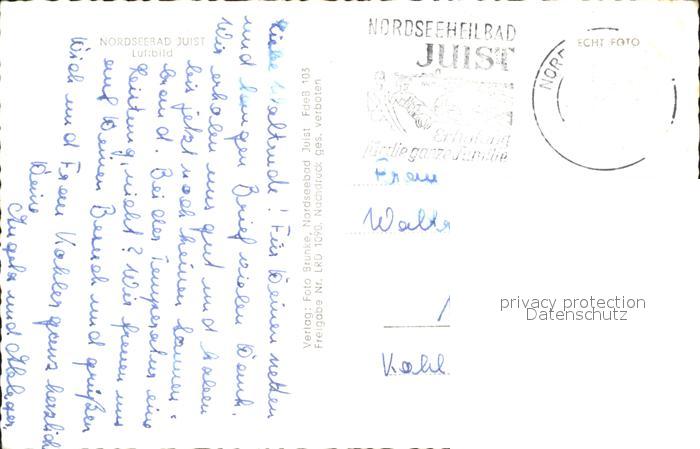 NORDSEEBAD JUIST
Luftbild
Liebe Waltrude! Für Deinen netten
und langen Brief vielen Dank.
Wir erholen uns gut und haben
bis jetzt noch keinen
Brand. Bei der Temperatur eine
Leistung, nicht? Wir freuen uns
auf Deinen Besuch und grüßen
Dich und Frau Kohler ganz herzlich
Deine
und
Verlag: Foto Brunke, Nordseebad Juist FdeB 103
Freigabe Nr. LRD 1090. Nachdruck ges. verboten
NORDSEEHEILBAD
JUIST
Erholung
für die ganze Familie
NOR
ECHT FOTO
Frau
Waltr
Kohl
privacy protection
Datenschutz